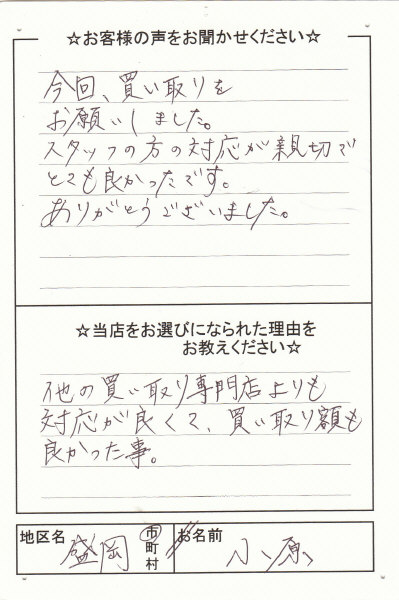 ☆お客様の声をお聞かせください☆
今回、買い取りを
お願いしました。
スタッフの方の対応が親切で
とても良かったです。
ありがとうございました。
☆当店をお選びになられた理由を
お教えください☆
他の買い取り専門店よりも
対応が良くて、買い取り額も
良かった事。
地区名 盛岡 市町村 お名前 小原